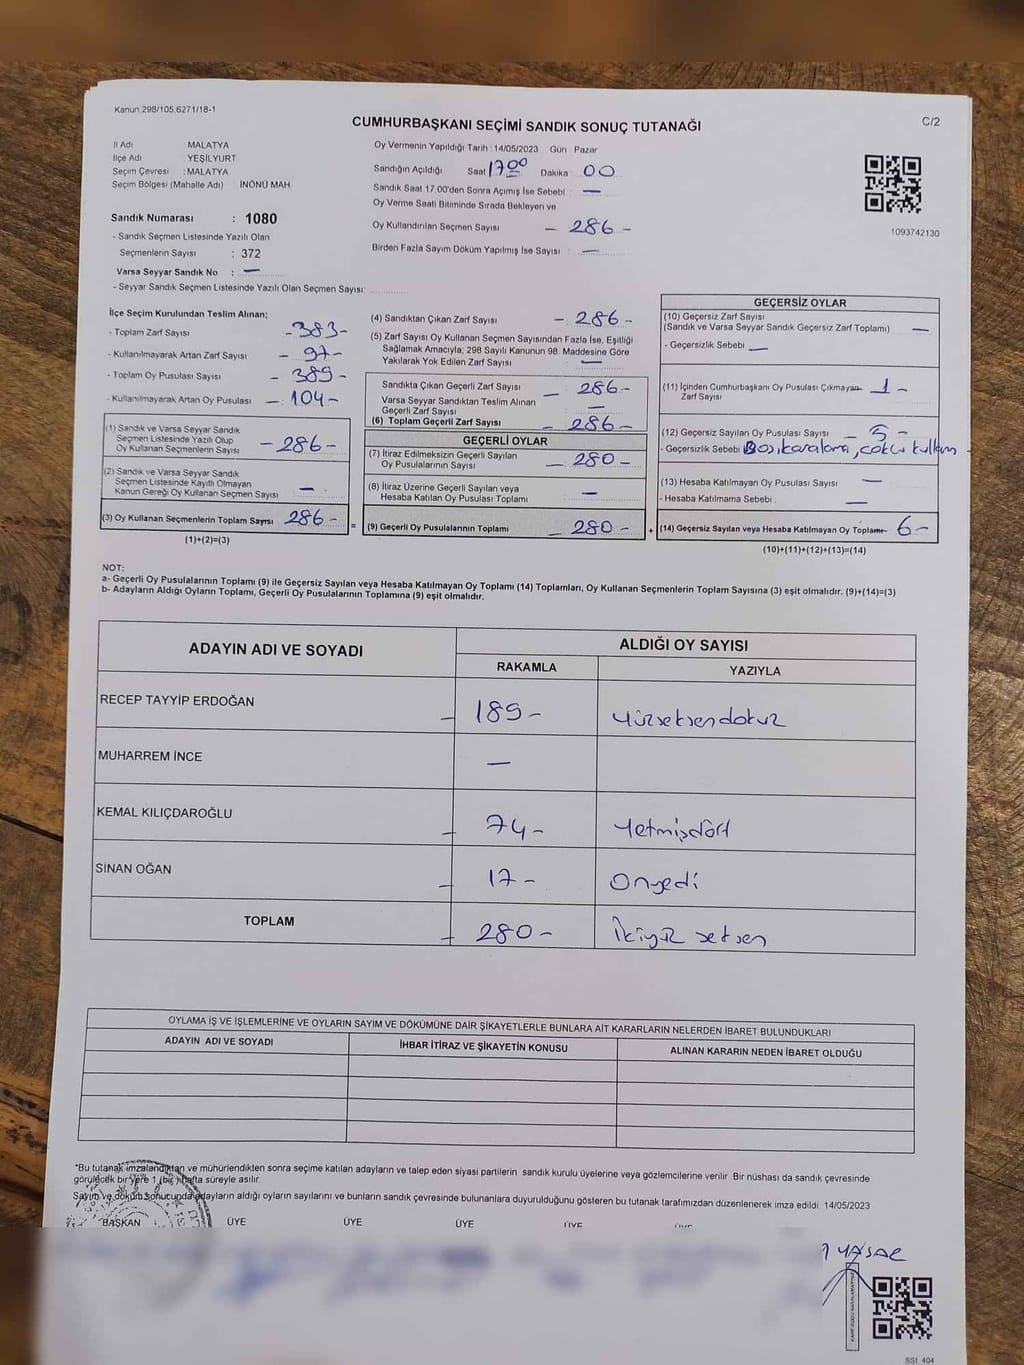 Kanun 298/105.6271/18-1
C/2
CUMHURBAŞKANI SEÇİMİ SANDIK SONUÇ TUTANAĞI
İl Adı MALATYA
İlçe Adı YEŞİLYURT
Seçim Çevresi : MALATYA
Seçim Bölgesi (Mahalle Adı) İNÖNÜ MAH
Sandık Numarası : 1080
- Sandık Seçmen Listesinde Yazılı Olan
Seçmenlerin Sayısı : 372
Varsa Seyyar Sandık No : —
- Seyyar Sandık Seçmen Listesinde Yazılı Olan Seçmen Sayısı:
Oy Vermenin Yapıldığı Tarih : 14/05/2023 Gün : Pazar
Sandığın Açıldığı Saat 17 00 Dakika 00
Sandık Saat 17.00'den Sonra Açımış İse Sebebi : —
Oy Verme Saati Bitiminde Sırada Bekleyen ve
Oy Kullandırılan Seçmen Sayısı - 286 -
Birden Fazla Sayım Döküm Yapılmış İse Sayısı : —
1093742130
İlçe Seçim Kurulundan Teslim Alınan;
- Toplam Zarf Sayısı - 383 -
- Kullanılmayarak Artan Zarf Sayısı - 97 -
- Toplam Oy Pusulası Sayısı - 389 -
- Kullanılmayarak Artan Oy Pusulası - 104 -
(1) Sandık ve Varsa Seyyar Sandık
Seçmen Listesinde Yazılı Olup
Oy Kullanan Seçmenlerin Sayısı - 286 -
(2) Sandık ve Varsa Seyyar Sandık
Seçmen Listesinde Kayıtlı Olmayan
Kanun Gereği Oy Kullanan Seçmen Sayısı —
(3) Oy Kullanan Seçmenlerin Toplam Sayısı 286 - =
(1)+(2)=(3)
(4) Sandıktan Çıkan Zarf Sayısı - 286 -
(5) Zarf Sayısı Oy Kullanan Seçmen Sayısından Fazla İse, Eşitliği
Sağlamak Amacıyla; 298 Sayılı Kanunun 98. Maddesine Göre
Yakılarak Yok Edilen Zarf Sayısı : —
Sandıkta Çıkan Geçerli Zarf Sayısı - 286 -
Varsa Seyyar Sandıktan Teslim Alınan
Geçerli Zarf Sayısı : —
(6) Toplam Geçerli Zarf Sayısı - 286 -
GEÇERLİ OYLAR
(7) İtiraz Edilmeksizin Geçerli Sayılan
Oy Pusulalarının Sayısı - 280 -
(8) İtiraz Üzerine Geçerli Sayılan veya
Hesaba Katılan Oy Pusulası Toplamı —
(9) Geçerli Oy Pusulalarının Toplamı - 280 - +
GEÇERSİZ OYLAR
(10) Geçersiz Zarf Sayısı
(Sandık ve Varsa Seyyar Sandık Geçersiz Zarf Toplamı) —
- Geçersizlik Sebebi —
(11) İçinden Cumhurbaşkanı Oy Pusulası Çıkmayan - 1 -
Zarf Sayısı
(12) Geçersiz Sayılan Oy Pusulası Sayısı - 5 -
- Geçersizlik Sebebi Boş, karalama, çoklu kullanım
(13) Hesaba Katılmayan Oy Pusulası Sayısı —
- Hesaba Katılmama Sebebi : —
(14) Geçersiz Sayılan veya Hesaba Katılmayan Oy Toplamı - 6 -
(10)+(11)+(12)+(13)=(14)
NOT:
a- Geçerli Oy Pusulalarının Toplamı (9) ile Geçersiz Sayılan veya Hesaba Katılmayan Oy Toplamı (14) Toplamları, Oy Kullanan Seçmenlerin Toplam Sayısına (3) eşit olmalıdır. (9)+(14)=(3)
b- Adayların Aldığı Oyların Toplamı, Geçerli Oy Pusulalarının Toplamına (9) eşit olmalıdır.
ADAYIN ADI VE SOYADI ALDIĞI OY SAYISI
RAKAMLA YAZIYLA
RECEP TAYYİP ERDOĞAN - 189 - Yüzseksendokuz
MUHARREM İNCE —
KEMAL KILIÇDAROĞLU - 74 - Yetmişdört
SİNAN OĞAN - 17 - Onyedi
TOPLAM - 280 - İkiyüz seksen
OYLAMA İŞ VE İŞLEMLERİNE VE OYLARIN SAYIM VE DÖKÜMÜNE DAİR ŞİKAYETLERLE BUNLARA AİT KARARLARIN NELERDEN İBARET BULUNDUKLARI
ADAYIN ADI VE SOYADI İHBAR İTİRAZ VE ŞİKAYETİN KONUSU ALINAN KARARIN NEDEN İBARET OLDUĞU
*Bu tutanak imzalandıktan ve mühürlendikten sonra seçime katılan adayların ve talep eden siyasi partilerin sandık kurulu üyelerine veya gözlemcilerine verilir. Bir nüshası da sandık çevresinde
görülecek bir yere 1 (bir) hafta süreyle asılır.
Sayım ve döküm sonucunda adayların aldığı oyların sayılarını ve bunların sandık çevresinde bulunanlara duyurulduğunu gösteren bu tutanak tarafımızdan düzenlenerek imza edildi 14/05/2023
BAŞKAN ÜYE ÜYE ÜYE ÜYE ÜYE
YAŞAR
SSI 404